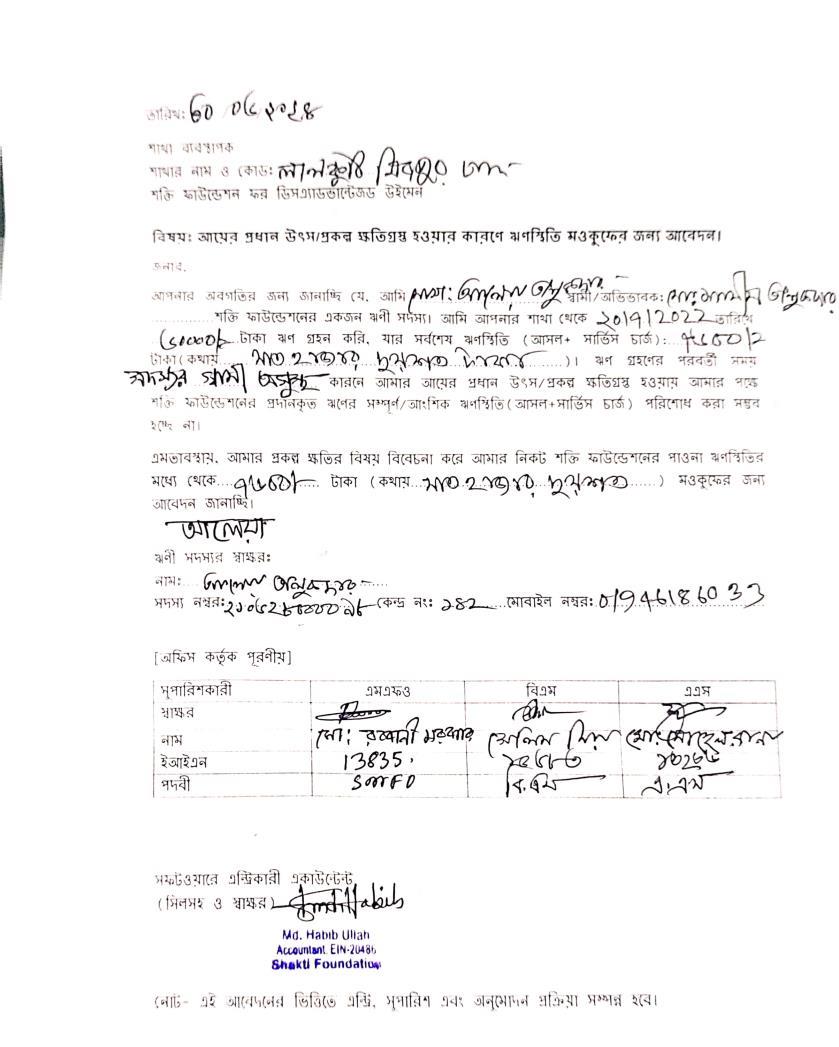 তারিখ:
শাখা ব্যবস্থাপক
শাখার নাম ও কোড: লালকুঠি মিরপুর ঢাকা
শক্তি ফাউন্ডেশন ফর ডিসএ্যাডভান্টেজড উইমেন
বিষয়: আয়ের প্রধান উৎস/প্রকল্প ক্ষতিগ্রস্থ হওয়ার কারণে ঋণস্থিতি মওকুফের জন্য আবেদন।
জনাব,
আপনার অবগতির জন্য জানাচ্ছি যে, আমি মোসা: স্বামী/অভিভাবক: মোঃ
শক্তি ফাউন্ডেশনের একজন ঋণী সদস্য। আমি আপনার শাখা থেকে ২০/৭/2022 তারিখে
টাকা ঋণ গ্রহন করি, যার সর্বশেষ ঋণস্থিতি (আসল+ সার্ভিস চার্জ):
টাকা (কথায় সাত হাজার ছয়শত টাকা )। ঋণ গ্রহণের পরবর্তী সময়
সদস্যর স্বামী অসুস্থ কারনে আমার আয়ের প্রধান উৎস/প্রকল্প ক্ষতিগ্রস্থ হওয়ায় আমার পক্ষে
শক্তি ফাউন্ডেশনের প্রদানকৃত ঋণের সম্পূর্ণ/আংশিক ঋণস্থিতি (আসল+সার্ভিস চার্জ) পরিশোধ করা সম্ভব
হচ্ছে না।
এমতাবস্থায়, আমার প্রকল্প ক্ষতির বিষয় বিবেচনা করে আমার নিকট শক্তি ফাউন্ডেশনের পাওনা ঋণস্থিতির
মধ্যে থেকে ৭৬০০/- টাকা (কথায় সাত হাজার ছয়শত ) মওকুফের জন্য
আবেদন জানাচ্ছি।
আলেয়া
ঋণী সদস্যর স্বাক্ষর:
নাম:
সদস্য নম্বর: কেন্দ্র নং: ১৪2 মোবাইল নম্বর: 01946186033
[অফিস কর্তৃক পূরণীয়]
সুপারিশকারী এমএফও বিএম এএস
স্বাক্ষর
নাম মো: রব্বানী সরকার সেলিম মিয়া মোঃ সোহেল রানা
ইআইএন 13835
পদবী SMFO বি.এম এ.এস
সফটওয়ারে এন্ট্রিকারী একাউন্টেন্ট
(সিলসহ ও স্বাক্ষর)
Md. Habib Ullah
Accountant, EIN-20486
Shakti Foundation
নোট- এই আবেদনের ভিত্তিতে এন্ট্রি, সুপারিশ এবং অনুমোদন প্রক্রিয়া সম্পন্ন হবে।